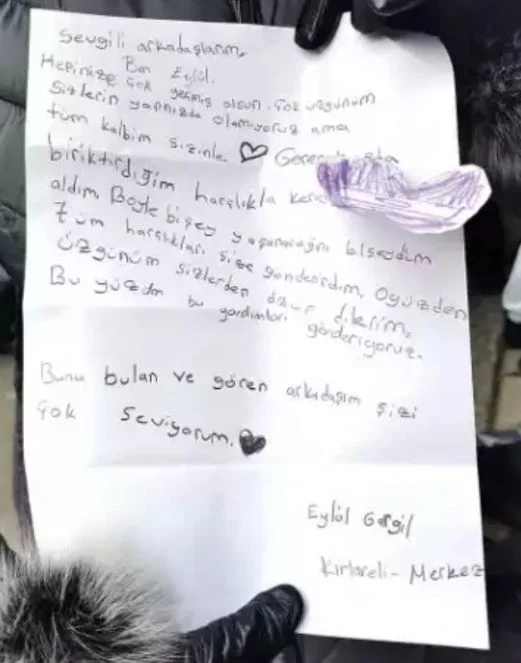 Sevgili arkadaşlarım,
Ben Eylül.
Hepinize çok geçmiş olsun. Çok üzgünüm
Sizlerin yanınızda olamıyoruz ama
tüm kalbim sizinle. ♡ Geçen
biriktirdiğim harçlıkla
aldım. Böyle bişey yaşanacağını bilseydim
tüm harçlıkları size gönderirdim. Oyüzden
üzgünüm sizlerden özür dilerim.
Bu yüzden bu yardımları gönderiyoruz.
Bunu bulan ve gören arkadaşım sizi
çok seviyorum. ♥
Eylül
Kırlareli - Merkez